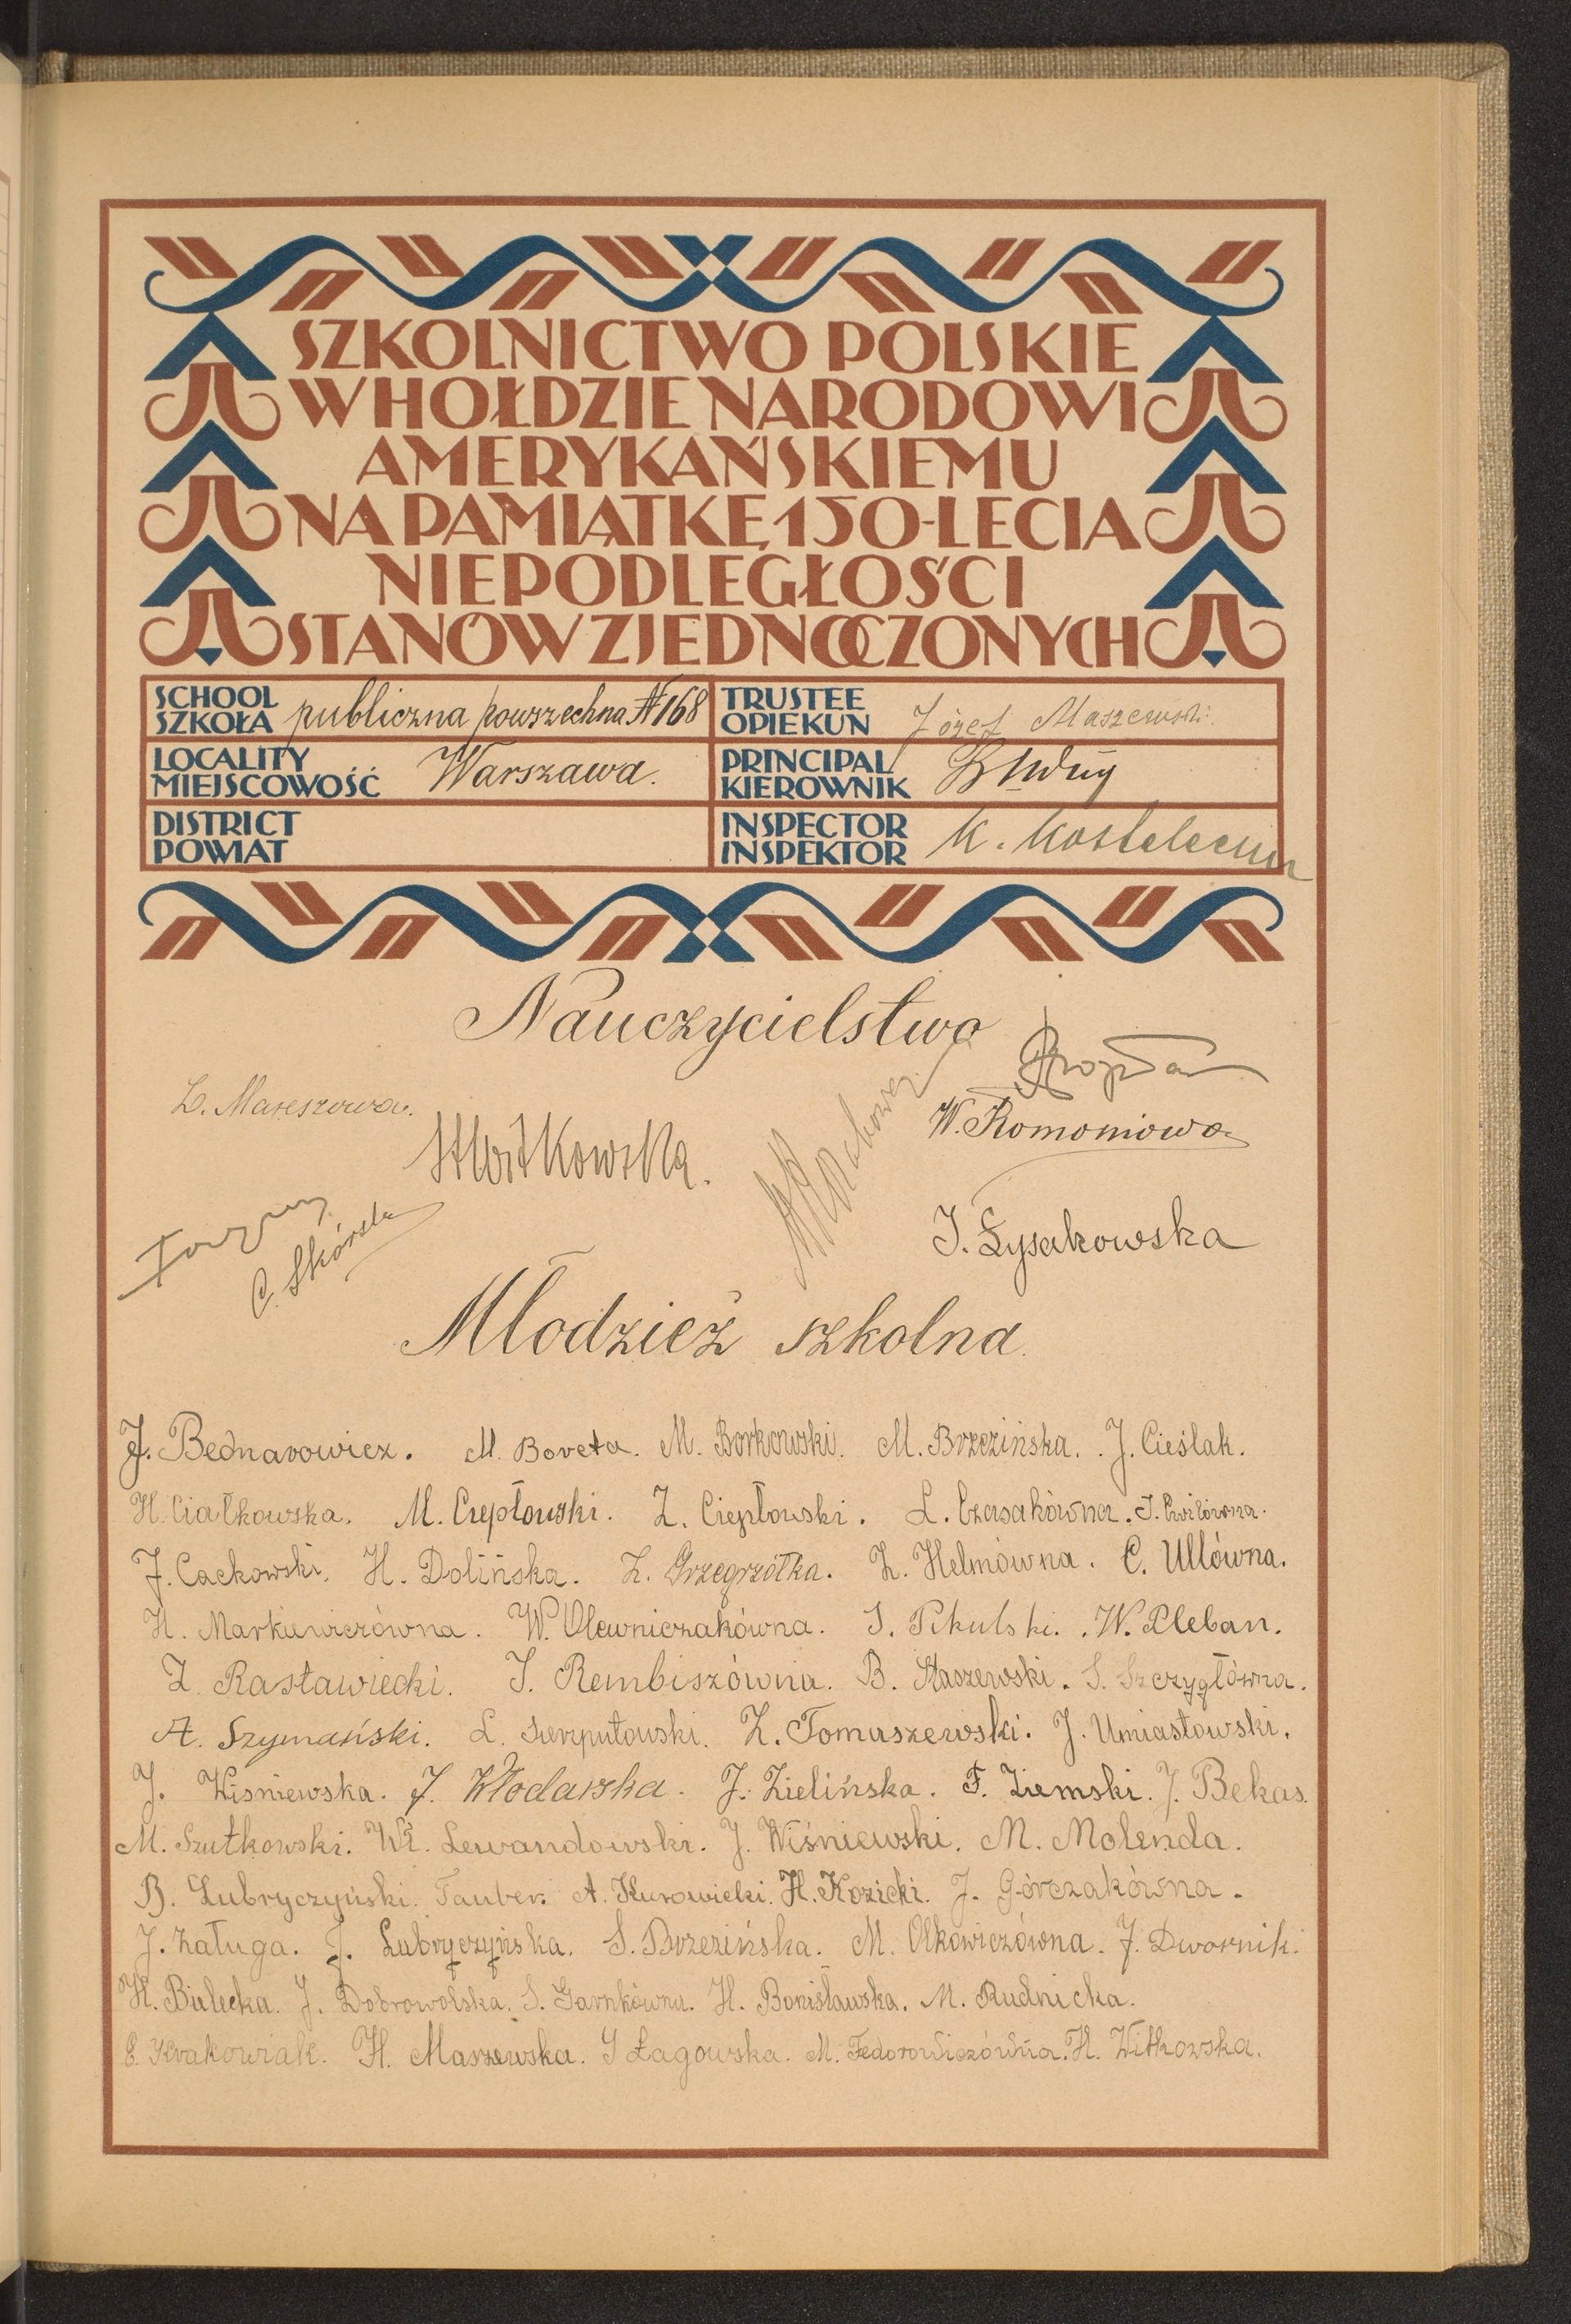 SZKOLNICTWO POLSKIE
W HOŁDZIE NARODOWI
AMERYKAŃSKIEMU
NA PAMIĄTKĘ 150-LECIA
NIEPODLEGŁOŚCI
STANÓW ZJEDNOCZONYCH
SCHOOL
SZKOŁA publiczna powszechna № 168
TRUSTEE
OPIEKUN Józef Maszewski.
LOCALITY
MIEJSCOWOŚĆ Warszawa.
PRINCIPAL
KIEROWNIK
DISTRICT
POWIAT
INSPECTOR
INSPEKTOR K.
Nauczycielstwo
L. Mareszowa.
W. Romoniowa
C. Skórska
J. Łysakowska
Młodzież szkolna.
J. Bednarowicz. M. Boveta. M. Borkowski. M. Brzezińska. J. Cieślak.
H. Ciałkowska. M. Ciepłowski. Z. Ciepłowski. L. Czasakówna. J.
J. Cackowski. H. Dolińska. Z. Grzegrzółka. Z. Helmówna. C. Ullówna.
H. Markiewiczówna. W. Olewniczakówna. S. Pikulski. W. Pleban.
Z. Rasławiecki. J. Rembiszówna. B. Staszewski. S. Szczygłówna.
A. Szymański. L. Sierputowski. Z. Tomaszewski. J. Umiastowski.
J. Wisniewska. J. Włodarska. J. Zielińska. F. Ziemski. J. Bekas.
M. Szutkowski. Wł. Lewandowski. J. Wiśniewski. M. Molenda.
B. Lubryczyński. Tauber. A. Kurowicki. H. Kozicki. J. Górczakówna.
J. Załuga. J. Lubryczyńska. S. Brzezińska. M. Olkowiczówna. J. Dwornik.
H. Bialecka. J. Dobrowolska. S. Garnkówna. H. Bonisławska. M. Rudnicka.
E. Krakowiak. H. Maszewska. J Łagowska. M. Fedorowiczówna. H. Witkowska.